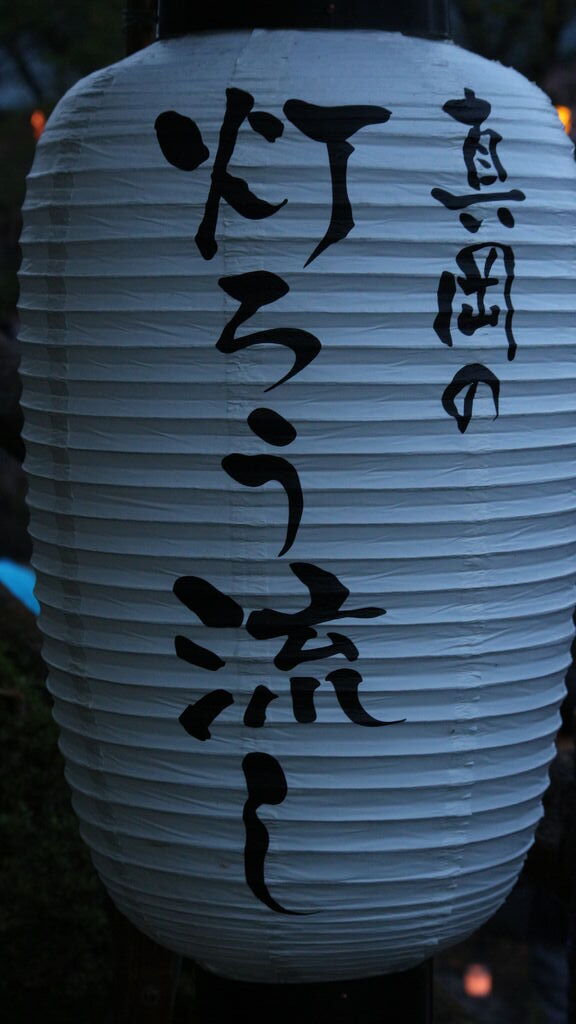 真岡の
灯ろう流し